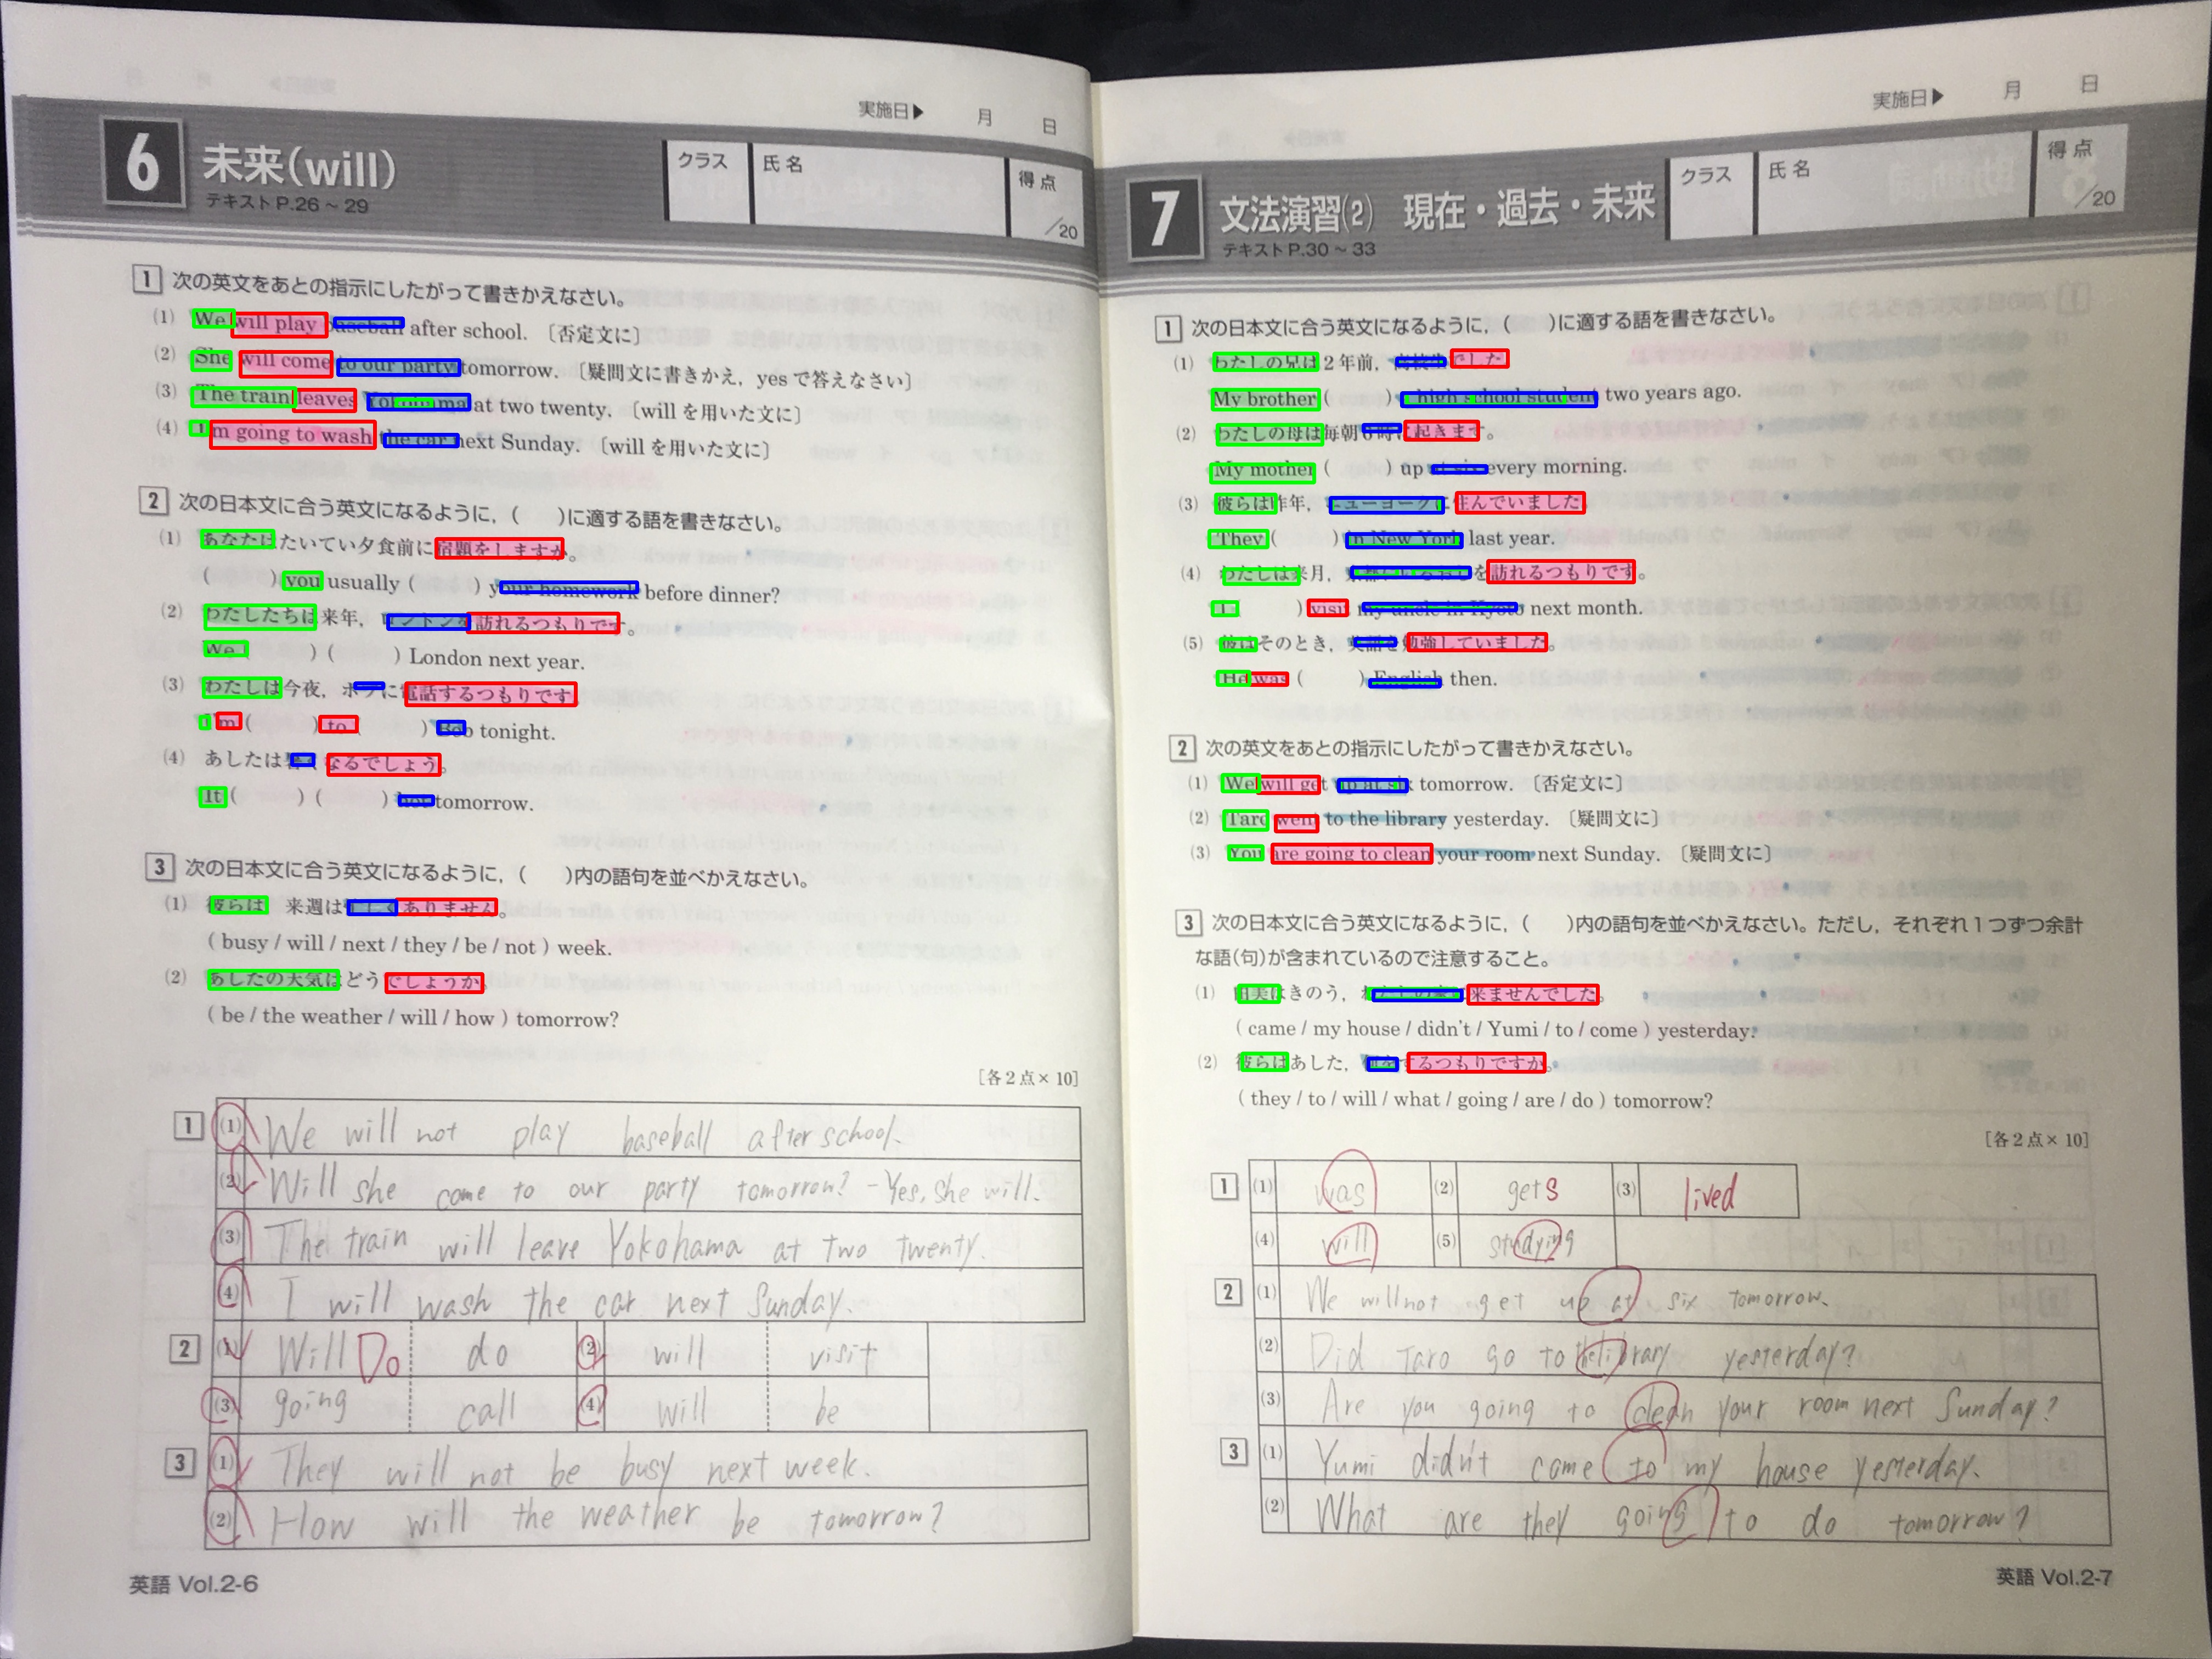 実施日▶ 月 日
6 未来(will)
テキストP.26~29
クラス 氏名 得点 /20
1 次の英文をあとの指示にしたがって書きかえなさい。
(1) We will play baseball after school. 〔否定文に〕
(2) She will come to our party tomorrow. 〔疑問文に書きかえ, yesで答えなさい〕
(3) The train leaves Yokohama at two twenty. 〔willを用いた文に〕
(4) I'm going to wash the car next Sunday. 〔willを用いた文に〕
2 次の日本文に合う英文になるように, ( )に適する語を書きなさい。
(1) あなたはたいてい夕食前に宿題をしますか。
( ) you usually ( ) your homework before dinner?
(2) わたしたちは来年, ロンドンを訪れるつもりです。
We ( ) ( ) London next year.
(3) わたしは今夜, ボブに電話するつもりです。
I'm ( ) to ( ) Bob tonight.
(4) あしたは暑くなるでしょう。
It ( ) ( ) hot tomorrow.
3 次の日本文に合う英文になるように, ( )内の語句を並べかえなさい。
(1) 彼らは 来週は忙しくありません。
( busy / will / next / they / be / not ) week.
(2) あしたの天気はどうでしょうか。
( be / the weather / will / how ) tomorrow?
[各2点×10]
1 (1) We will not play baseball after school.
(2) Will she come to our party tomorrow? - Yes, she will.
(3) The train will leave Yokohama at two twenty.
(4) I will wash the car next Sunday.
2 (1) Will Do do (2) will visit
(3) going call (4) will be
3 (1) They will not be busy next week.
(2) How will the weather be tomorrow?
英語 Vol.2-6
実施日▶ 月 日
7 文法演習(2) 現在・過去・未来
テキストP.30~33
クラス 氏名 得点 /20
1 次の日本文に合う英文になるように, ( )に適する語を書きなさい。
(1) わたしの兄は2年前, 高校生でした
My brother ( ) a high school student two years ago.
(2) わたしの母は毎朝6時に起きます。
My mother ( ) up at six every morning.
(3) 彼らは昨年, ニューヨークに住んでいました
They ( ) in New York last year.
(4) わたしは来月, 京都にいるおじを訪れるつもりです。
I ( ) visit my uncle in Kyoto next month.
(5) 彼はそのとき, 英語を勉強していました。
He was ( ) English then.
2 次の英文をあとの指示にしたがって書きかえなさい。
(1) We will get up at six tomorrow. 〔否定文に〕
(2) Taro went to the library yesterday. 〔疑問文に〕
(3) You are going to clean your room next Sunday. 〔疑問文に〕
3 次の日本文に合う英文になるように, ( )内の語句を並べかえなさい。ただし, それぞれ1つずつ余計
な語(句)が含まれているので注意すること。
(1) 由美はきのう, わたしの家に来ませんでした。
( came / my house / didn't / Yumi / to / come ) yesterday.
(2) 彼らはあした, 何をするつもりですか。
( they / to / will / what / going / are / do ) tomorrow?
[各2点×10]
1 (1) was (2) gets (3) lived
(4) will (5) studying
2 (1) We will not get up at six tomorrow.
(2) Did Taro go to the library yesterday?
(3) Are you going to clean your room next Sunday?
3 (1) Yumi didn't come to my house yesterday.
(2) What are they going to do tomorrow?
英語 Vol.2-7